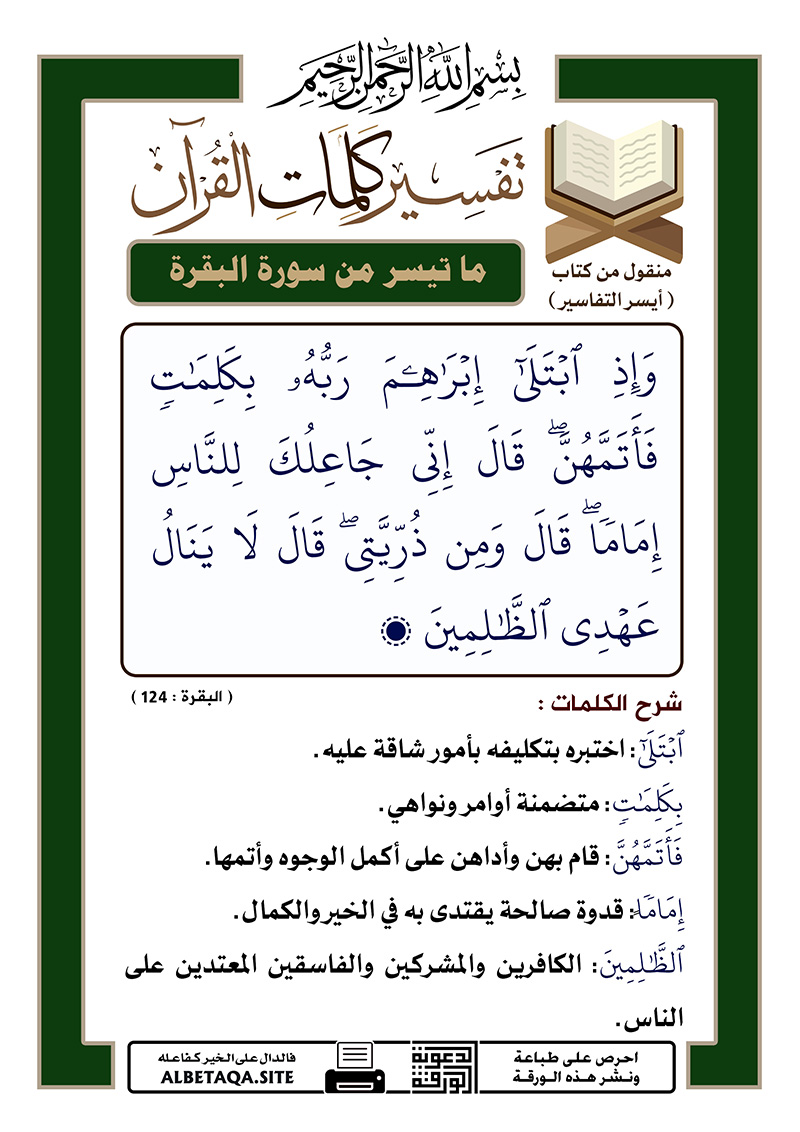 بِسْمِ اللَّهِ الرَّحْمَنِ الرَّحِيمِ
تَفْسِير كَلِمَاتِ الْقُرْآن
ما تيسر من سورة البقرة
منقول من كتاب
( أيسر التفاسير )
وَإِذِ ٱبْتَلَىٰٓ إِبْرَٰهِـۧمَ رَبُّهُۥ بِكَلِمَٰتٖ
فَأَتَمَّهُنَّۖ قَالَ إِنِّي جَاعِلُكَ لِلنَّاسِ
إِمَامٗاۖ قَالَ وَمِن ذُرِّيَّتِيۖ قَالَ لَا يَنَالُ
عَهْدِي ٱلظَّٰلِمِينَ
( البقرة : 124 )
شرح الكلمات :
ٱبْتَلَىٰٓ: اختبره بتكليفه بأمور شاقة عليه.
بِكَلِمَٰتٖ: متضمنة أوامر ونواهي.
فَأَتَمَّهُنَّ: قام بهن وأداهن على أكمل الوجوه وأتمها.
إِمَامٗا: قدوة صالحة يقتدى به في الخير والكمال.
ٱلظَّٰلِمِينَ: الكافرين والمشركين والفاسقين المعتدين على
الناس.
احرص على طباعة
ونشر هذه الورقة
الورقة الدعوية
فالدال على الخير كفاعله
ALBETAQA.SITE